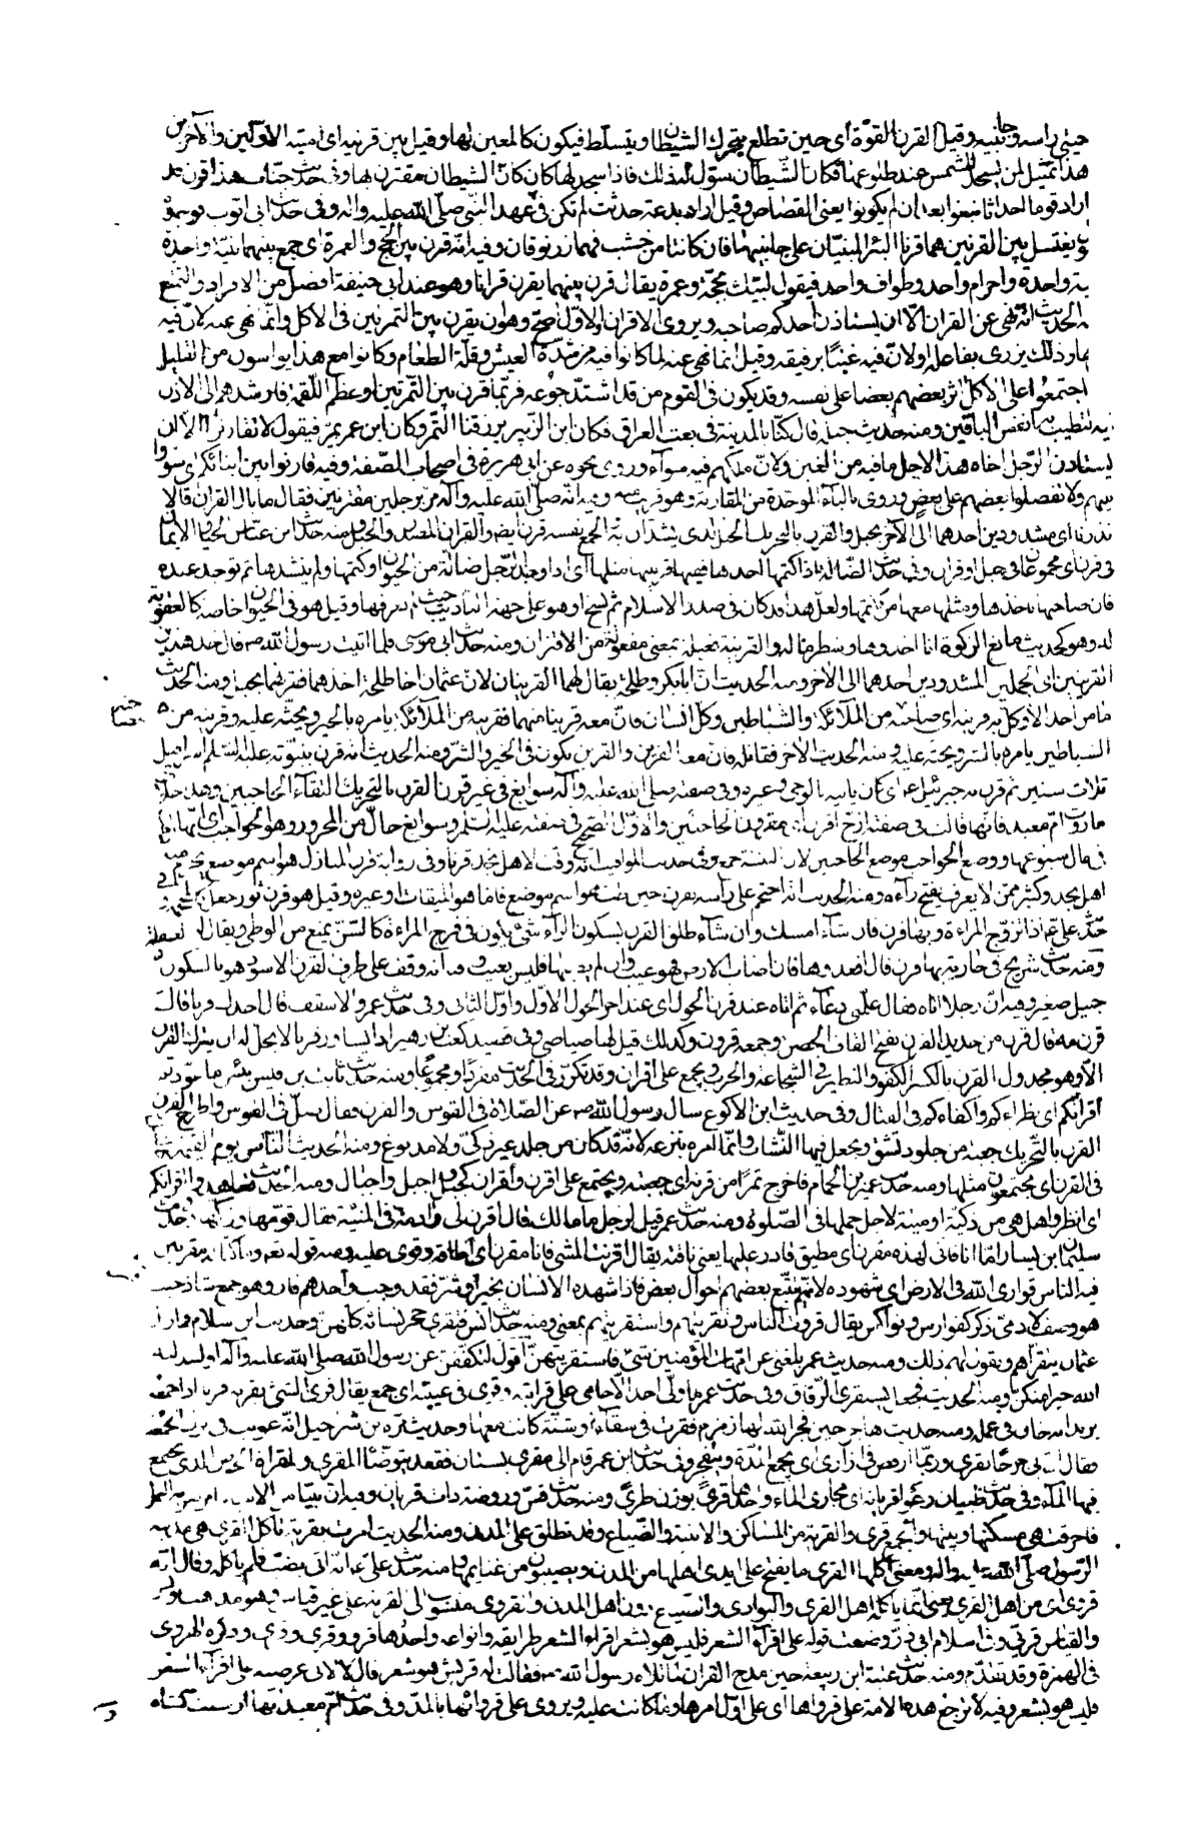 حيتي راسه وجانبيه وقيل القرن القوة اى حين تطلع يتحرك الشيطان ويتسلط فيكون كالمعين لها وقيل بين قرنيه اى امتيه الاولين والآخرين
هذا تمثيل لمن يسجد للشمس عند طلوعها فكان الشيطان سول له ذلك فاذا سجد لها كان كان الشيطان مقترن بها وفى حديث خباب هذا قرن قد
اراد قوما احداثا نبغوا بعد ان لم يكونوا يعنى القصاص وقيل اراد بدعة حدثت لم تكن فى عهد النبى صلى الله عليه واله وفى حديث ابى ايوب فوجده
يغتسل بين القرنين هما قرنا البئر المبنيان على جانبيها فان كانتا من خشب فهما زرنوقان وفيه انه قرن بين الحج والعمرة اى جمع بينهما بنية واحدة
ية واحدة واحرام واحد وطواف واحد فيقول لبيك بحجة وعمرة يقال قرن بينهما يقرن قرانا وهو عند ابى حنيفة افضل من الافراد والتمتع
الحديث انه نهى عن القران الا ان يستاذن احدكم صاحبه ويروى الاقران والاول اصح وهو ان يقرن بين التمرتين فى الاكل وانما نهى عنه لان فيه
وذلك يزرى بفاعله او لان فيه غبنا برفيقه وقيل انما نهى عنه لما كانوا فيه من شدة العيش وقلة الطعام وكانوا مع هذا يواسون من القليل
اجتمعوا على الاكل اثر بعضهم بعضا على نفسه وقد يكون فى القوم من قد اشتد جوعه فربما قرن بين التمرتين او عظم اللقمة فارشدهم الى الاذن
فيه لتطيب به انفس الباقين ومنه حديث جبلة قال كنا بالمدينة فى بعث العراق فكان ابن الزبير يرزقنا التمر وكان ابن عمر يمر فيقول لا تقارنوا الا ان
يستاذن الرجل اخاه هذا لاجل ما فيه من الغبن ولان ملكهم فيه سواء وروى نحوه عن ابى هريرة فى اصحاب الصفة وفيه قارنوا بين ابنائكم اى سووا
بينهم ولا تفضلوا بعضهم على بعض وروى بالباء الموحدة من المقاربة وهو قريب منه وفيه انه صلى الله عليه وآله مر برجلين مقترنين فقال ما بال القران قالا
نذرنا اى مشدودين احدهما الى الآخر بحبل والقرن بالتحريك الحبل الذى يشدان به والجمع نفسه قرن ايضا والقران المصدر والحبل ومنه حديث ابن عباس الحياء والايمان
فى قرن اى مجموعان فى حبل او قران وفى حديث الضالة اذا كتمها احد هافيها قرينتها مثلها اى اذا وجد الرجل ضالة من الحيوان وكتمها ولم ينشدها ثم توجد عنده
فان صاحبها ياخذها ومثلها معها من كاتمها ولعل هذا قد كان فى صدر الاسلام ثم نسخ او هو على جهة التاديب حيث لم يعرفها وقيل هو فى الحيوان خاصة كالعقوبة
له وهو كحديث مانع الزكوة انا اخذوها وشطر ماله والقرينة فعيلة بمعنى مفعولة من الاقتران ومنه حديث ابى موسى فلما اتيت رسول الله ص قال خذ هذين
القرينين اى الجملين المشدودين احدهما الى الآخر ومنه الحديث ان ابابكر وطلحة يقال لهما القرينان لان عثمان اخا طلحة اخذهما فقرنهما بحبل ومنه الحديث
ما من احد الا وكل به قرينه اى صاحبه من الملائكة والشياطين وكل انسان فان معه قرينا منهما فقرينه من الملائكة يامره بالخير ويحثه عليه وقرينه من
الشياطين يامره بالشر ويحثه عليه ومنه الحديث الآخر فقاتله فان معه القرين والقرين يكون فى الخير والشر ومنه الحديث انه قرن بنبوته عليه السلام اسرافيل
ثلاث سنين ثم قرن به جبرئيل اى كان ياتيه بالوحى وغيره وفى صفته صلى الله عليه وآله سوابغ فى غير قرن القرن بالتحريك التقاء الحاجبين وهذا خلاف
ما روت ام معبد فانها قالت فى صفته ازج اقرن اى مقرون الحاجبين والاول الصحيح فى صفته عليه السلام وسوابغ حال من المجرور وهو الحواجب اى انها
فى حال سبوغها ووضع الحواجب موضع الحاجبين لان التثنية جمع وفى حديث المواقيت انه وقت لاهل نجد قرنا وفى رواية قرن المنازل هو اسم موضع يحرم منه
اهل نجد وكثير ممن لا يعرف يفتح راءه ومنه الحديث انه احتجم على راسه بقرن حين طب هو اسم موضع فاما هو الميقات او غيره وقيل هو قرن ثور جعل كالمحجمة
حديث على ع اذا تزوج المراءة وبها قرن فان شاء امسك وان شاء طلق القرن بسكون الراء شئ يكون فى فرج المراءة كالسن يمنع من الوطى ويقال له العفلة
ومنه حديث شريح فى جارية بها قرن قال اقعدوها فان اصاب الارض فهو عيب وان لم يصبها فليس بعيب وفيه انه وقف على طرف القرن الاسود هو بالسكون
جبل صغير وفيه ان رجلا اتاه فقال علمنى دعاء ثم اتاه عند قرن الحول اى عند اخر الحول الاول واول الثانى وفى حديث عمر والاسقف قال اجدك قرنا قال
قرن مه قال قرن من حديد القرن بفتح القاف الحصن وجمعه قرون وكذلك قيل لها صياصى وفى قصيد كعب بن زهير اذا يساور قرنا لا يحل له ان يترك القرن
الا وهو مجدول القرن بالكسر الكفو والنظير فى الشجاعة والحرب ويجمع على اقران وقد تكرر فى الحديث مفردا ومجموعا ومنه حديث ثابت بن قيس بئس ما عودتم
اقرانكم اى نظراءكم واكفاءكم فى القتال وفى حديث ابن الاكوع سال رسول الله ص عن الصلاة فى القوس والقرن فقال صل فى القوس واطرح القرن
القرن بالتحريك جعبة من جلود تشق ويجعل فيها النشاب وانما امره بنزعه لانه قد كان من جلد غير ذكى ولا مدبوغ ومنه الحديث الناس يوم القيمة كالنبل
فى القرن اى مجتمعون مثلها ومنه حديث عمير بن الحمام فاخرج تمرا من قرنه اى جعبته ويجتمع على اقرن واقران كجبل واجبل واجبال ومنه الحديث تعاهدوا اقرانكم
اى انظروا هل هى من ذكية او ميتة لاجل حملها فى الصلوة ومنه حديث عمر قيل لرجل ما مالك قال اقرن لى وآدمة فى المنيئة فقال قومها وزكها وفى حديث
سليمان بن يسار اما انا فانى لهذه مقرن اى مطيق قادر عليها يعنى ناقته يقال اقرنت للشئ فانا مقرن اى اطاقه وقوى عليه ومنه قوله تعالى وما كنا له مقرنين
فيه الناس قوارى الله فى الارض اى شهوده لانهم يتتبع بعضهم احوال بعض فاذا شهدوا لانسان بخير او شر فقد وجب واحدهم قار وهو جمع شاذ حيث
هو وصف لادمى ذكر كفوارس ونواكس يقال قروت الناس وتقريتهم واقتريتهم واستقريتهم بمعنى ومنه حديث انس فتقرى حجر نسائه كلهن وحديث ابن سلام فما زال
عثمان يتقراهم ويقول لهم ذلك ومنه حديث عمر بلغنى عن امهات المؤمنين شئ فاستقريتهن اقول لتكففن عن رسول الله صلى الله عليه وآله او ليبدلنه
الله خيرا منكن ومنه الحديث فجعل يستقرى الرفاق وفى حديث عمر ما ولى احد الا حامى على قرابته وقرى فى عيبته اى جمع يقال قرى الشئ يقريه قريا اذا جمعه
يريد انه خان فى عمله ومنه حديث هاجر حين فجر الله لها زمزم فقرت فى سقاء او شنة كانت معها وحديث مرة بن شرحبيل انه عوتب فى ترك الجمعة
فقال ان بى جرحا يقرى وربما ارفض فى ازارى اى يجمع المدة وينفجر وفى حديث ابن عمر قام الى مقرى بستان فقعد يتوضا المقرى والمقراة الحوض الذى يجتمع
فيها الماء وفى حديث ظبيان رعوا قريانه اى مجارى الماء واحدها قرى بوزن طرى ومنه حديث قس وروضة ذات قريان وفيه ان نبيا من الانبياء امر بقرية النمل
فاحرقت هى مسكنها وبيتها والجمع قرى والقرية من المساكن والابنية والضياع وقد تطلق على المدن ومنه الحديث امرت بقرية تاكل القرى هى مدينة
الرسول صلى الله عليه واله ومعنى اكلها القرى ما يفتح على ايدى اهلها من المدن ويصيبون من غنايمها ومنه حديث على ع انه اتى بضب فلم ياكله وقال انه
قروى اى من اهل القرى يعنى انما ياكله اهل القرى والبوادى والضياع دون اهل المدن والقروى منسوب الى القرية على غير قياس وهو مذهب يونس
والقياس قريى وفى اسلام ابى ذر وضعت قوله على اقراء الشعر فليس هو بشعر اقراء الشعر طرايقه وانواعه واحدها قرو وقرى وقرى وذكره الهروى
فى الهمزة وقد تقدم ومنه حديث عتبة ابن ربيعة حين مدح القران لما تلاه رسول الله ص فقالت له قريش هو شعر قال لا لانى عرضته على اقراء الشعر
فليس هو بشعر وفيه لا ترجع هذه الامة على قرواها اى على اول امرها وما كانت عليه ويروى على قروائها بالمد وفى حديث ام معبد انها ارسلت اليه بشاة